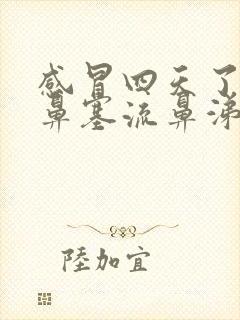 感冒四天了
鼻塞流鼻涕
陸加宜